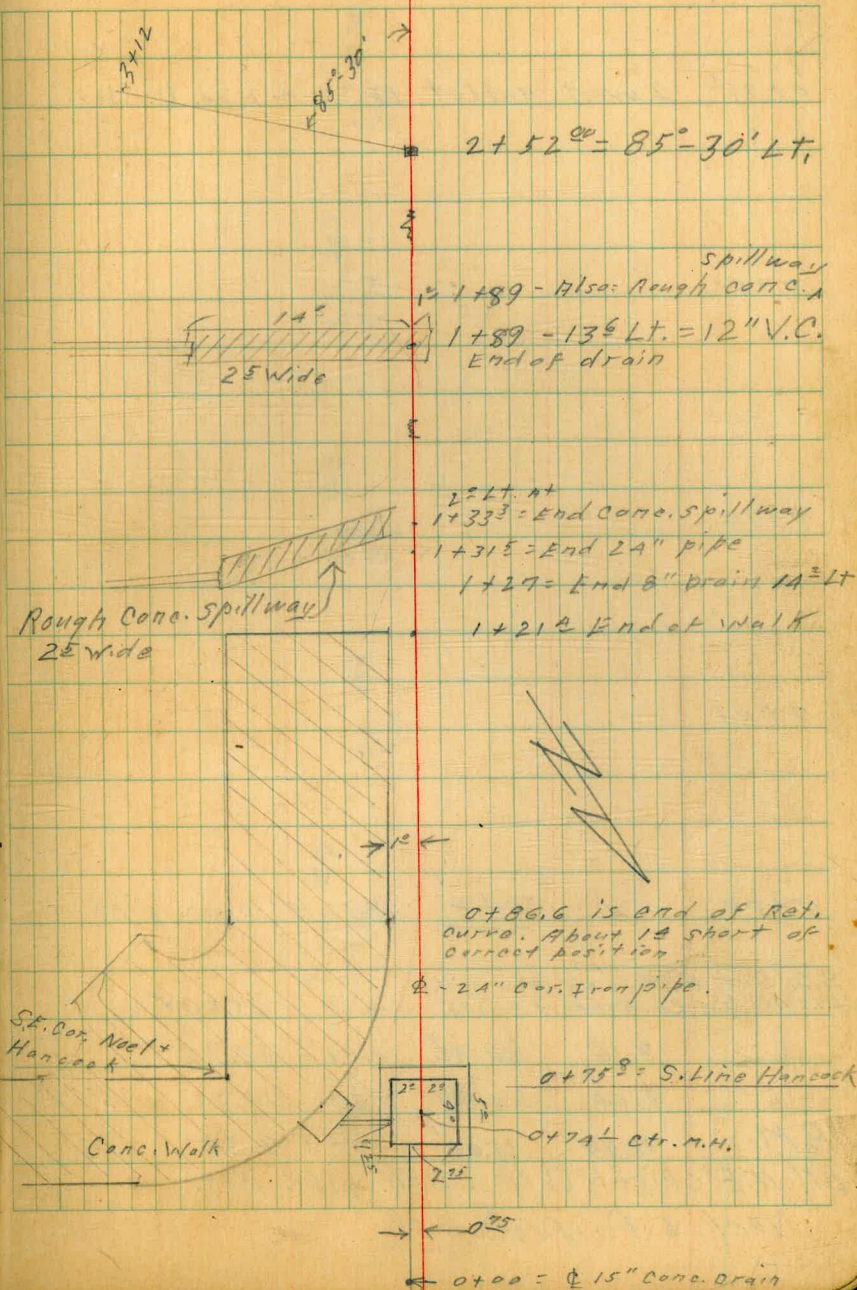 3+12
85°-30'
2+52ºº = 85°-30' Lt.
spillway
1º 1+89 - Also: Rough conc.
14º
1+89 - 13⁶ Lt. = 12" V.C.
End of drain
2⁵ Wide
2º Lt. At
1+33³ = End Conc. spillway
1+31⁵ = End 24" pipe
1+27 = End 8" Drain 14⁵ Lt
Rough Conc. Spillway
2⁵ Wide
1+21⁴ End of Walk
1º
0+86.6 is end of Ret.
curve. About 1⁴ short of
correct position
℄ - 24" Cor. Iron pipe.
S.E. Cor. Noel +
Hancock
0+75⁸ = S. Line Hancock
2º 2º
4º
5º
0+74¹ Ctr. M.H.
Conc. Walk
2⁷⁵
0⁷⁵
0+00 = ℄ 15" Conc. Drain